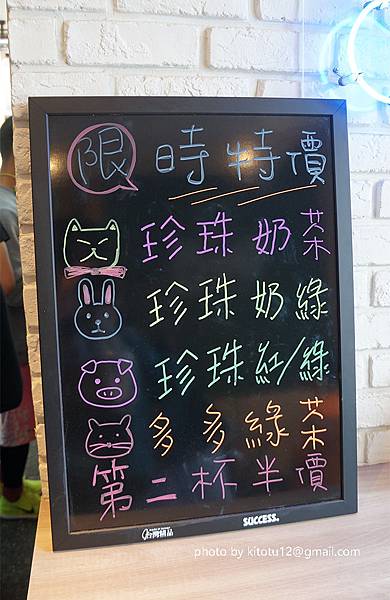 限時特價
珍珠奶茶
珍珠奶綠
珍珠紅/綠
多多綠茶
第二杯半價
SUCCESS.
photo by kitotu12@gmail.com